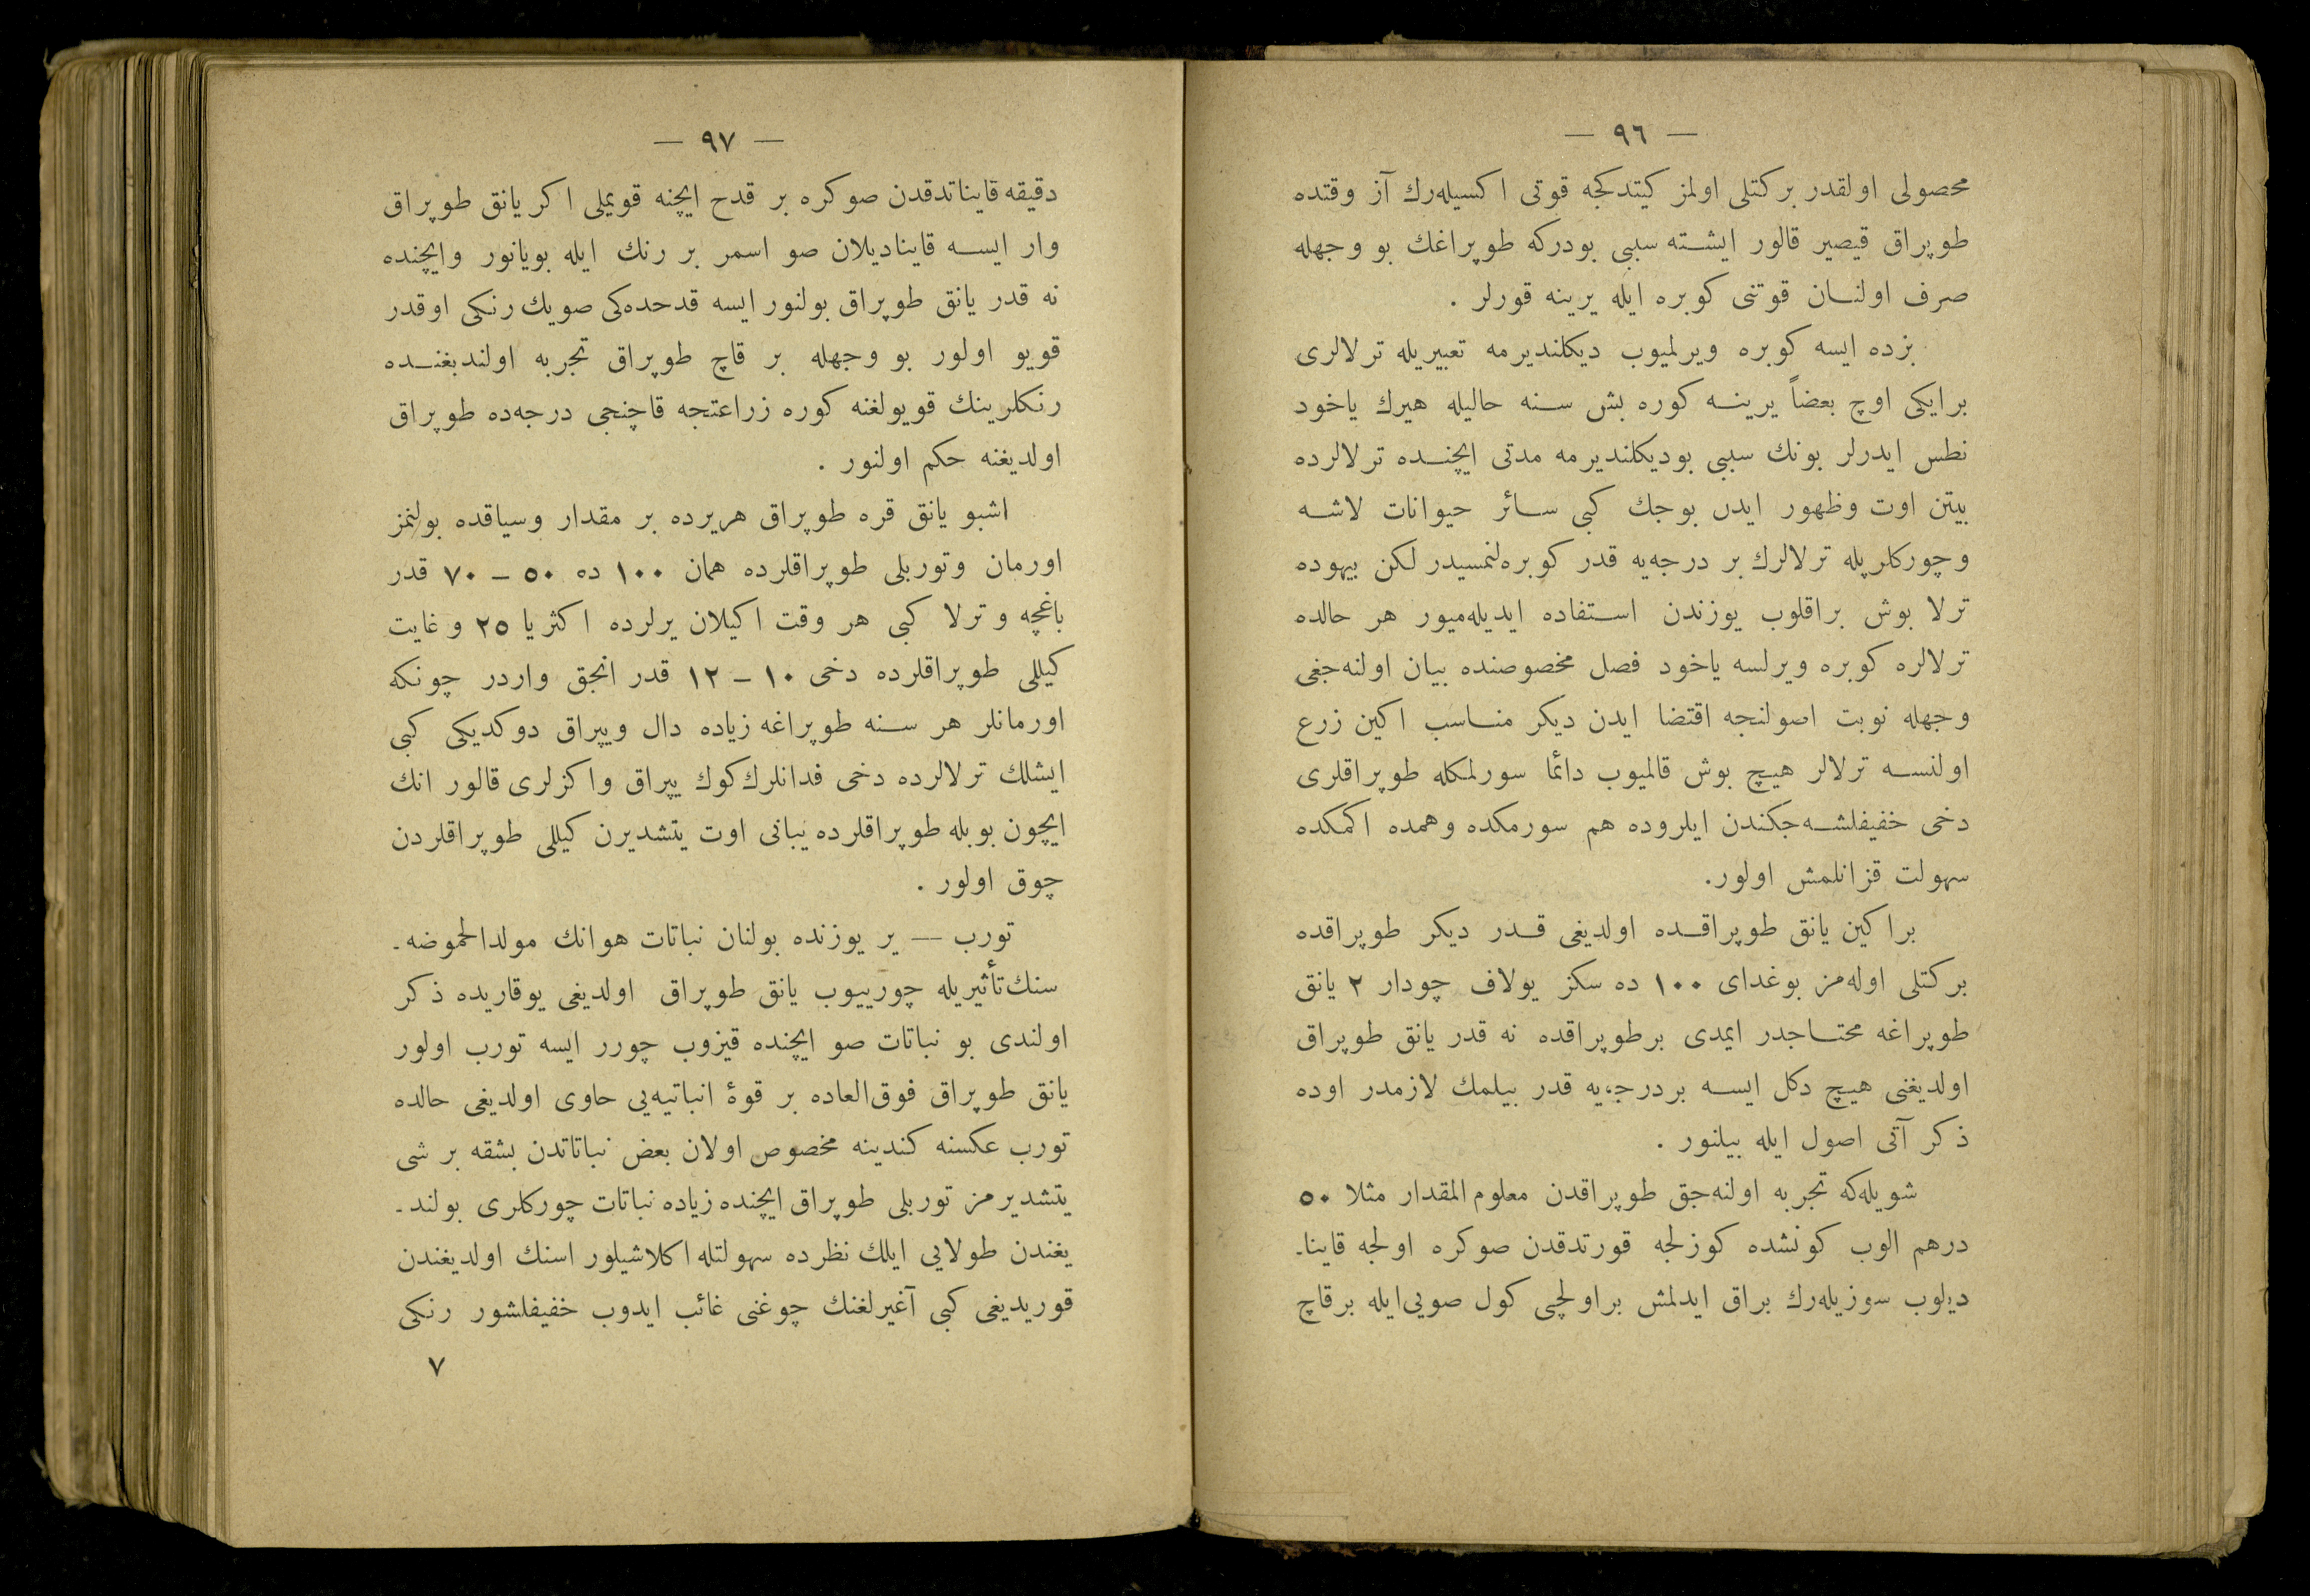 — ٩٦ —
محصولی اولقدر بركتلی اولمز كیتدكجه قوتی اكسیله‌رك آز وقتده
طوپراق قیصیر قالور ایشته سببی بودركه طوپراغك بو وجهله
صرف اولنان قوتنی كوبره ایله یرینه قورلر .
بزده ایسه كوبره ویرلمیوب دیكلندیرمه تعبیریله ترلالری
برایكی اوچ بعضاً یرینه كوره بش سنه حالیله هیرك یاخود
نطس ایدرلر بونك سببی بودیكلندیرمه مدتی ایچنده ترلالرده
بیتن اوت وظهور ایدن بوجك كبی سائر حیوانات لاشه
وچوركلریله ترلالرك بر درجه‌یه قدر كوبره‌لنمسیدر لكن بیهوده
ترلا بوش براقلوب یوزندن استفاده ایدیله‌میور هر حالده
ترلالره كوبره ویرلسه یاخود فصل مخصوصنده بیان اولنه‌جغی
وجهله نوبت اصولنجه اقتضا ایدن دیكر مناسب اكین زرع
اولنسه ترلالر هیچ بوش قالمیوب دائما سورلمكله طوپراقلری
دخی خفیفلشه‌جكندن ایلروده هم سورمكده وهمده اكمكده
سهولت قزانلمش اولور.
براكین یانق طوپراقده اولدیغی قدر دیكر طوپراقده
بركتلی اوله‌مز بوغدای ١٠٠ ده سكز یولاف چودار ٢ یانق
طوپراغه محتاجدر ایمدی برطوپراقده نه قدر یانق طوپراق
اولدیغنی هیچ دكل ایسه بردرجه‌یه قدر بیلمك لازمدر اوده
ذكر آتی اصول ایله بیلنور .
شویله‌كه تجربه اولنه‌جق طوپراقدن معلوم المقدار مثلا ٥٠
درهم الوب كونشده كوزلجه قورتدقدن صوكره اولجه قاینا-
دیلوب سوزیله‌رك براق ایدلمش براولچی كول صویی‌ایله برقاچ
— ٩٧ —
دقیقه قایناتدقدن صوكره بر قدح ایچنه قویملی اكر یانق طوپراق
وار ایسه قاینادیلان صو اسمر بر رنك ایله بویانور وایچنده
نه قدر یانق طوپراق بولنور ایسه قدحده‌كی صویك رنكی اوقدر
قویو اولور بو وجهله بر قاچ طوپراق تجربه اولندیغنده
رنكلرینك قویولغنه كوره زراعتجه قاچنجی درجه‌ده طوپراق
اولدیغنه حكم اولنور .
اشبو یانق قره طوپراق هریرده بر مقدار وسیاقده بولنمز
اورمان وتوربلی طوپراقلرده همان ١٠٠ ده ٥٠ – ٧٠ قدر
باغچه و ترلا كبی هر وقت اكیلان یرلرده اكثریا ٢٥ وغایت
كیللی طوپراقلرده دخی ١٠ – ١٢ قدر انجق واردر چونكه
اورمانلر هر سنه طوپراغه زیاده دال ویپراق دوكدیكی كبی
ایشلك ترلالرده دخی فدانلرك كوك یپراق واكزلری قالور انك
ایچون بویله طوپراقلرده یبانی اوت یتشدیرن كیللی طوپراقلردن
چوق اولور .
تورب — یر یوزنده بولنان نباتات هوانك مولدالحموضه-
سنك تأثیریله چوریيوب یانق طوپراق اولدیغی یوقاریده ذكر
اولندی بو نباتات صو ایچنده قیزوب چورر ایسه تورب اولور
یانق طوپراق فوق‌العاده بر قوۀ انباتیه‌یی حاوی اولدیغی حالده
تورب عكسنه كندینه مخصوص اولان بعض نباتاتدن بشقه بر شی
یتشدیرمز توربلی طوپراق ایچنده زیاده نباتات چوركلری بولند-
یغندن طولایی ایلك نظرده سهولتله اكلاشیلور اسنك اولدیغندن
قوریدیغی كبی آغیرلغنك چوغنی غائب ایدوب خفیفلشور رنكی
٧